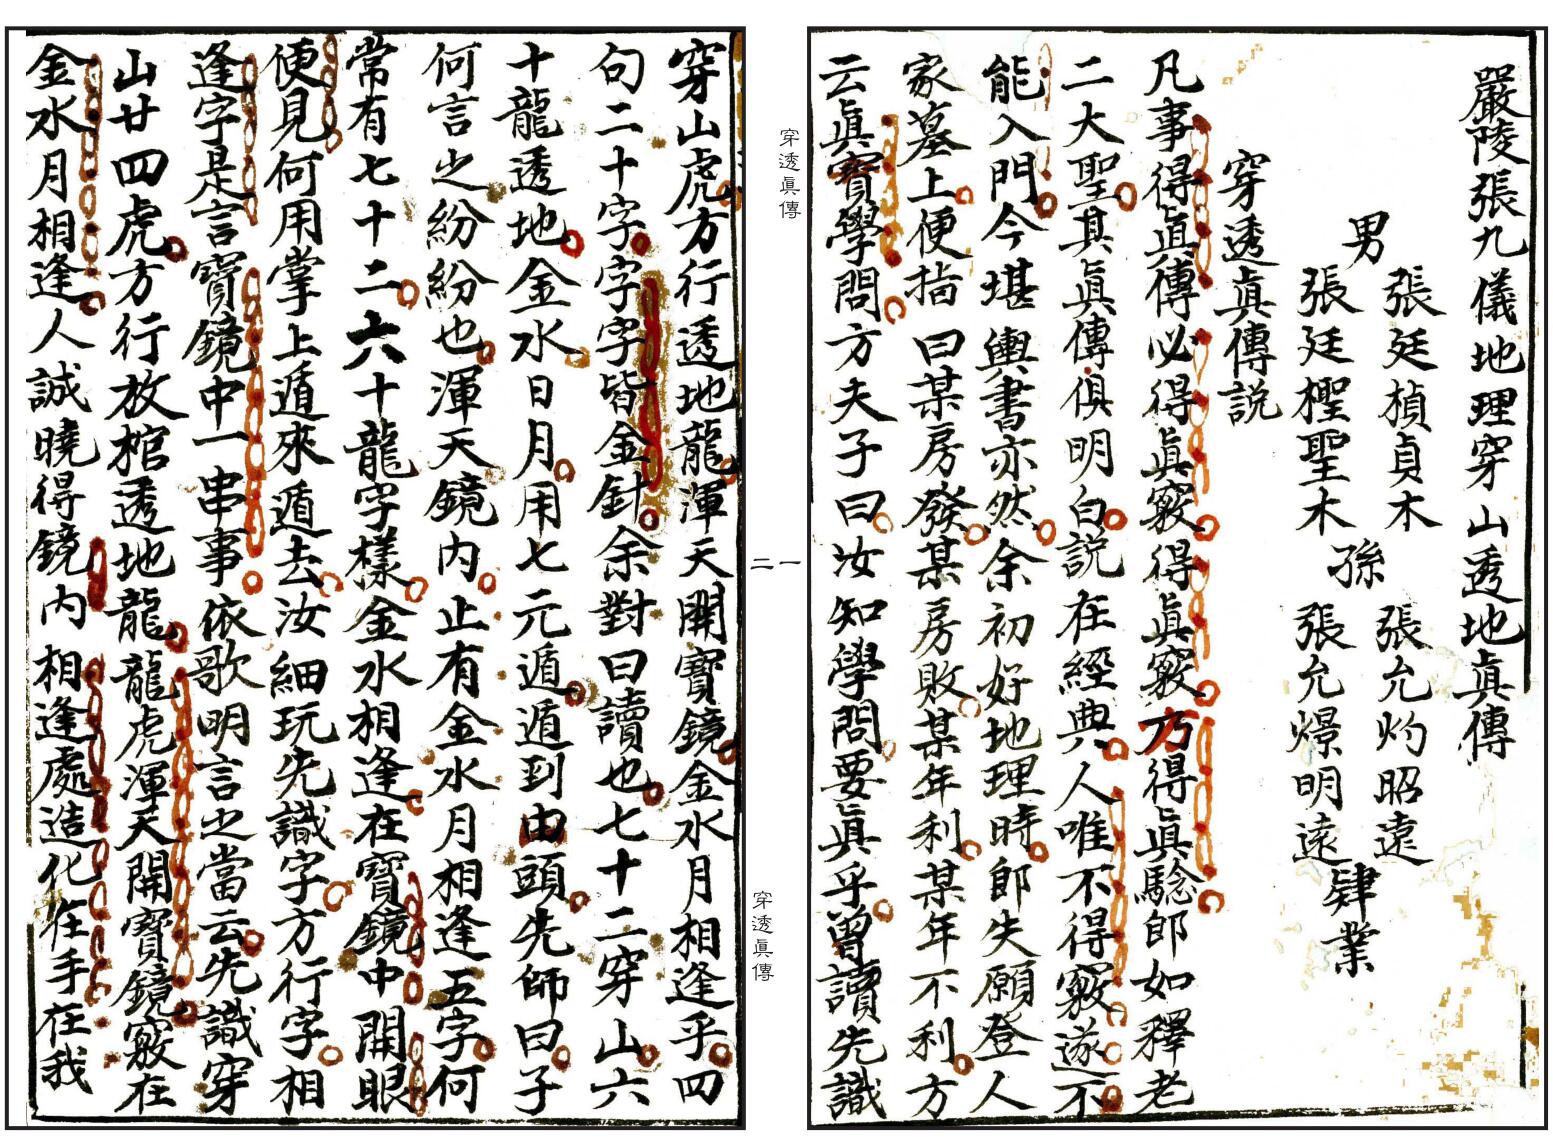 嚴陵張九儀地理穿山透地眞傳
男
張廷楨貞木
張廷檉聖木
孫
張允灼昭遠
張允燝明遠
肄業
穿透眞傳説
凡事得眞傳必得眞竅得眞竅方得眞驗卽如釋老
二大聖其眞傳俱明白説在經典人唯不得竅遂不
能入門今堪輿書亦然余初好地理時卽失願登人
家墓上便指曰某房發某房敗某年利某年不利方
云眞寶學問方夫子曰汝知學問要眞乎曾讀先識
穿透眞傳
一
二
穿透眞傳
穿山虎方行透地龍渾天開寶鏡金水月相逢乎四
句二十字字字皆金針余對曰讀也七十二穿山六
十龍透地金水日月用七元遁遁到由頭先師曰子
何言之紛紛也渾天鏡內止有金水月相逢五字何
常有七十二六十龍字樣金水相逢在寶鏡中開眼
便見何用掌上遁來遁去汝細玩先識字方行字相
逢字是言寶鏡中一串事依歌明言之當云先識穿
山廿四虎方行放棺透地龍龍虎渾天開寶鏡竅在
金水月相逢人誠曉得鏡內相逢處造化在手在我